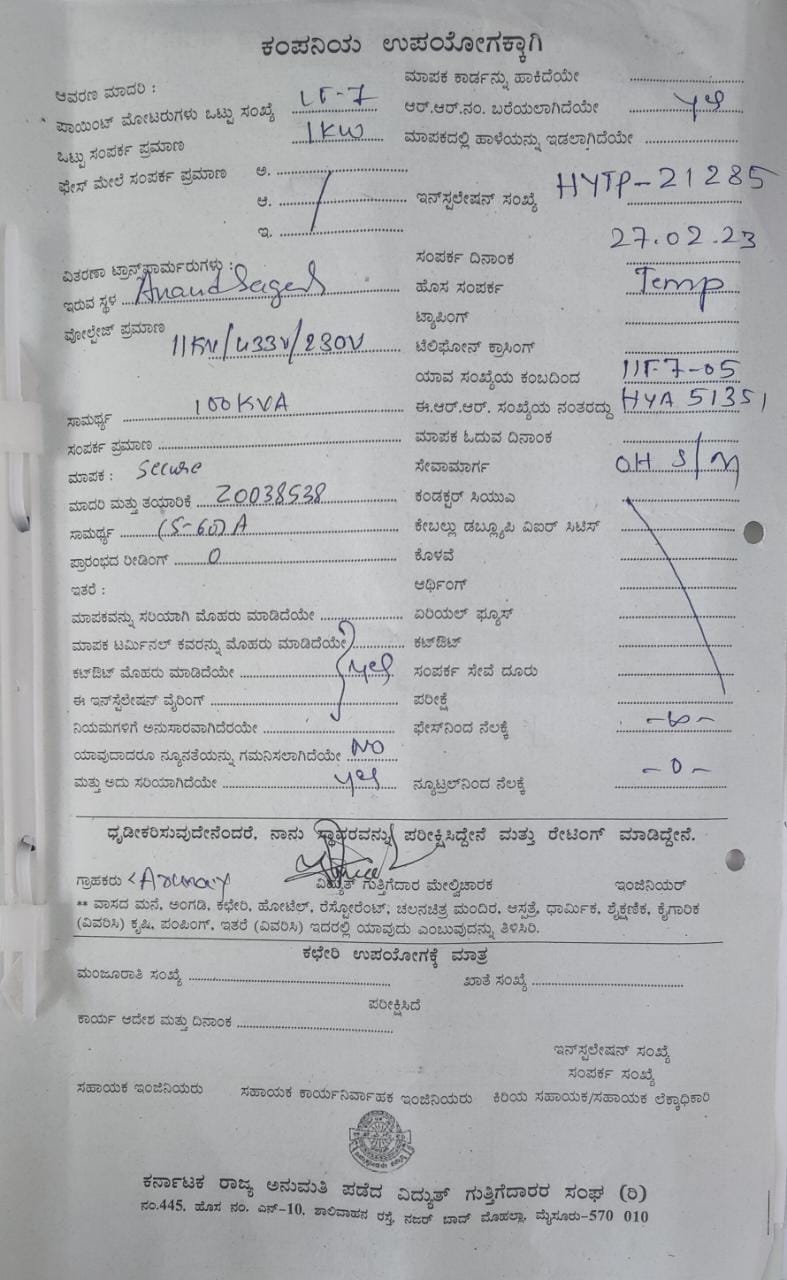 ಕಂಪನಿಯ ಉಪಯೋಗಕ್ಕಾಗಿ
ಆವರಣ ಮಾದರಿ :
ಪಾಯಿಂಟ್ ಮೋಟರುಗಳು ಒಟ್ಟು ಸಂಖ್ಯೆ LT-7
ಒಟ್ಟು ಸಂಪರ್ಕ ಪ್ರಮಾಣ 1KW
ಫೇಸ್ ಮೇಲೆ ಸಂಪರ್ಕ ಪ್ರಮಾಣ ಅ.
ಆ.
ಇ.
ವಿತರಣಾ ಟ್ರಾನ್ಸ್‌ಫಾರ್ಮರುಗಳು :
ಇರುವ ಸ್ಥಳ Anand
ವೋಲ್ಟೇಜ್ ಪ್ರಮಾಣ 11KV/433V/230V
ಸಾಮರ್ಥ್ಯ 100KVA
ಸಂಪರ್ಕ ಪ್ರಮಾಣ
ಮಾಪಕ : Secure
ಮಾದರಿ ಮತ್ತು ತಯಾರಿಕೆ 20038538
ಸಾಮರ್ಥ್ಯ (5-60) A
ಪ್ರಾರಂಭದ ರೀಡಿಂಗ್ 0
ಇತರೆ :
ಮಾಪಕವನ್ನು ಸರಿಯಾಗಿ ಮೊಹರು ಮಾಡಿದೆಯೇ
ಮಾಪಕ ಟರ್ಮಿನಲ್ ಕವರನ್ನು ಮೊಹರು ಮಾಡಿದೆಯೇ
ಕಟ್‌ಔಟ್ ಮೊಹರು ಮಾಡಿದೆಯೇ yes
ಈ ಇನ್‌ಸ್ಪೆಲೇಷನ್ ವೈರಿಂಗ್
ನಿಯಮಗಳಿಗೆ ಅನುಸಾರವಾಗಿದೆರಯೇ
ಯಾವುದಾದರೂ ನ್ಯೂನತೆಯನ್ನು ಗಮನಿಸಲಾಗಿದೆಯೇ NO
ಮತ್ತು ಅದು ಸರಿಯಾಗಿದೆಯೇ yes
ಮಾಪಕ ಕಾರ್ಡನ್ನು ಹಾಕಿದೆಯೇ
ಆರ್.ಆರ್.ನಂ. ಬರೆಯಲಾಗಿದೆಯೇ yes
ಮಾಪಕದಲ್ಲಿ ಹಾಳೆಯನ್ನು ಇಡಲಾಗಿದೆಯೇ
ಇನ್‌ಸ್ಪಲೇಷನ್ ಸಂಖ್ಯೆ HYTP-21285
ಸಂಪರ್ಕ ದಿನಾಂಕ 27.02.23
ಹೊಸ ಸಂಪರ್ಕ Temp
ಟ್ಯಾಪಿಂಗ್
ಟೆಲಿಫೋನ್ ಕ್ರಾಸಿಂಗ್
ಯಾವ ಸಂಖ್ಯೆಯ ಕಂಬದಿಂದ
ಈ.ಆರ್.ಆರ್. ಸಂಖ್ಯೆಯ ನಂತರದ್ದು HYA 51351
ಮಾಪಕ ಓದುವ ದಿನಾಂಕ
ಸೇವಾಮಾರ್ಗ OH S/M
ಕಂಡಕ್ಟರ್ ಸಿಯುಎ
ಕೇಬಲ್ಲು ಡಬ್ಲ್ಯೂಪಿ ವಿಐರ್ ಸಿಟಿಸ್
ಕೊಳವೆ
ಆರ್ಥಿಂಗ್
ಏರಿಯಲ್ ಫ್ಯೂಸ್
ಕಟ್‌ಔಟ್
ಸಂಪರ್ಕ ಸೇವೆ ದೂರು
ಪರೀಕ್ಷೆ
ಫೇಸ್‌ನಿಂದ ನೆಲಕ್ಕೆ
ನ್ಯೂಟ್ರಲ್‌ನಿಂದ ನೆಲಕ್ಕೆ - 0 -
ಧೃಡೀಕರಿಸುವುದೇನೆಂದರೆ, ನಾನು ಸ್ಥಾವರವನ್ನು ಪರೀಕ್ಷಿಸಿದ್ದೇನೆ ಮತ್ತು ರೇಟಿಂಗ್ ಮಾಡಿದ್ದೇನೆ.
ಗ್ರಾಹಕರು ವಿದ್ಯುತ್ ಗುತ್ತಿಗೆದಾರ ಮೇಲ್ವಿಚಾರಕ ಇಂಜಿನಿಯರ್
** ವಾಸದ ಮನೆ, ಅಂಗಡಿ, ಕಛೇರಿ, ಹೋಟೆಲ್, ರೆಸ್ಟೋರೆಂಟ್, ಚಲನಚಿತ್ರ ಮಂದಿರ, ಆಸ್ಪತ್ರೆ, ಧಾರ್ಮಿಕ, ಶೈಕ್ಷಣಿಕ, ಕೈಗಾರಿಕ
(ವಿವರಿಸಿ) ಕೃಷಿ, ಪಂಪಿಂಗ್, ಇತರೆ (ವಿವರಿಸಿ) ಇದರಲ್ಲಿ ಯಾವುದು ಎಂಬುವುದನ್ನು ತಿಳಿಸಿರಿ.
ಕಛೇರಿ ಉಪಯೋಗಕ್ಕೆ ಮಾತ್ರ
ಮಂಜೂರಾತಿ ಸಂಖ್ಯೆ ಖಾತೆ ಸಂಖ್ಯೆ
ಪರೀಕ್ಷಿಸಿದೆ
ಕಾರ್ಯ ಆದೇಶ ಮತ್ತು ದಿನಾಂಕ
ಇನ್‌ಸ್ಪಲೇಷನ್ ಸಂಖ್ಯೆ
ಸಂಪರ್ಕ ಸಂಖ್ಯೆ
ಸಹಾಯಕ ಇಂಜಿನಿಯರು ಸಹಾಯಕ ಕಾರ್ಯನಿರ್ವಾಹಕ ಇಂಜಿನಿಯರು ಕಿರಿಯ ಸಹಾಯಕ/ಸಹಾಯಕ ಲೆಕ್ಕಾಧಿಕಾರಿ
ಕರ್ನಾಟಕ ರಾಜ್ಯ ಅನುಮತಿ ಪಡೆದ ವಿದ್ಯುತ್ ಗುತ್ತಿಗೆದಾರರ ಸಂಘ (ರಿ)
ನಂ.445, ಹೊಸ ನಂ. ಎನ್-10, ಶಾಲಿವಾಹನ ರಸ್ತೆ, ನಜರ್ ಬಾದ್ ಮೊಹಲ್ಲಾ, ಮೈಸೂರು-570 010